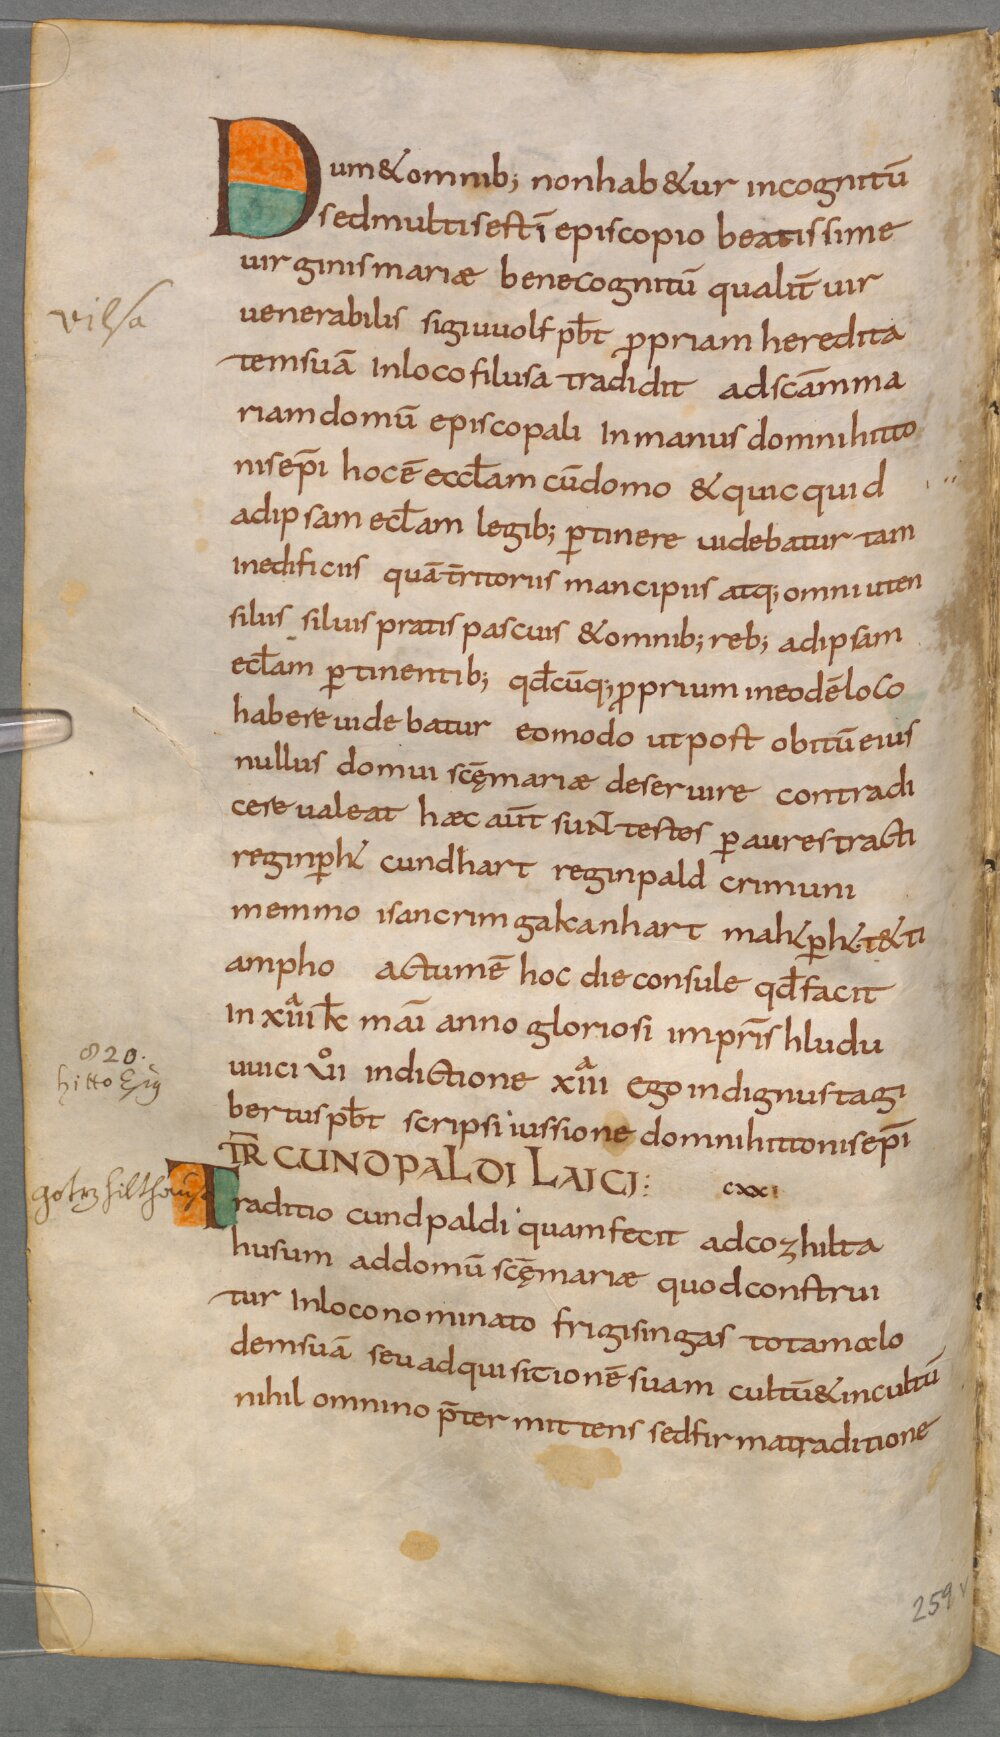 Dum & omnib; non hab&ur incognitū
sed multis est ī episcopio beatissime
uirginis mariæ bene cognitū qualit̄ uir
vilsa
uenerabilis sigiuuolf pb̄t ꝓpriam heredita
tem suā In loco filusa tradidit ad sc̄am ma
riam domū episcopali In manus domni hitto
nis ep̄i hoc ē eccl̄am cū domo & quicquid
ad ipsam ecl̄am legib; ꝑtinere uidebatur tam
in edificiis quā t̄ritoriis mancipiis atq; omni uten
siliis siluis pratis pascuis & omnib; reb; ad ipsam
ecl̄am ꝑtinentib; qd̄cūq; ꝓprium in eodē loco
habere uidebatur eo modo ut post obitū eius
nullus domui sc̄ę mariæ deseruire contradi
cere ualeat hæc aūt sunt testes ꝑ aures tracti
reginꝑh̄t cundhart reginpald crimuni
memmo isancrim gakanhart mahꝑht & ti
ampho actum ē hoc die consule qd̄ facit
In xiiii k̄ mai anno gloriosi imp̄ris hludu
820.
hitto Ep̄s
uuici vii indictione xiiii Ego indignus tagi
bertus pb̄t scripsi iussione domni hittonis ep̄i
TR̄ CUNDPALDI LAICI: cxxi
gotzhilthaus
Traditio cundpaldi quam fecit ad cozhilta
husum ad domū sc̄ę mariæ quod construi
tur In loco nominato frigisingas totam alo
dem suā seu adquisitionē suam cultū & incultū
nihil omnino p̄termittens sed firma traditione
259 v